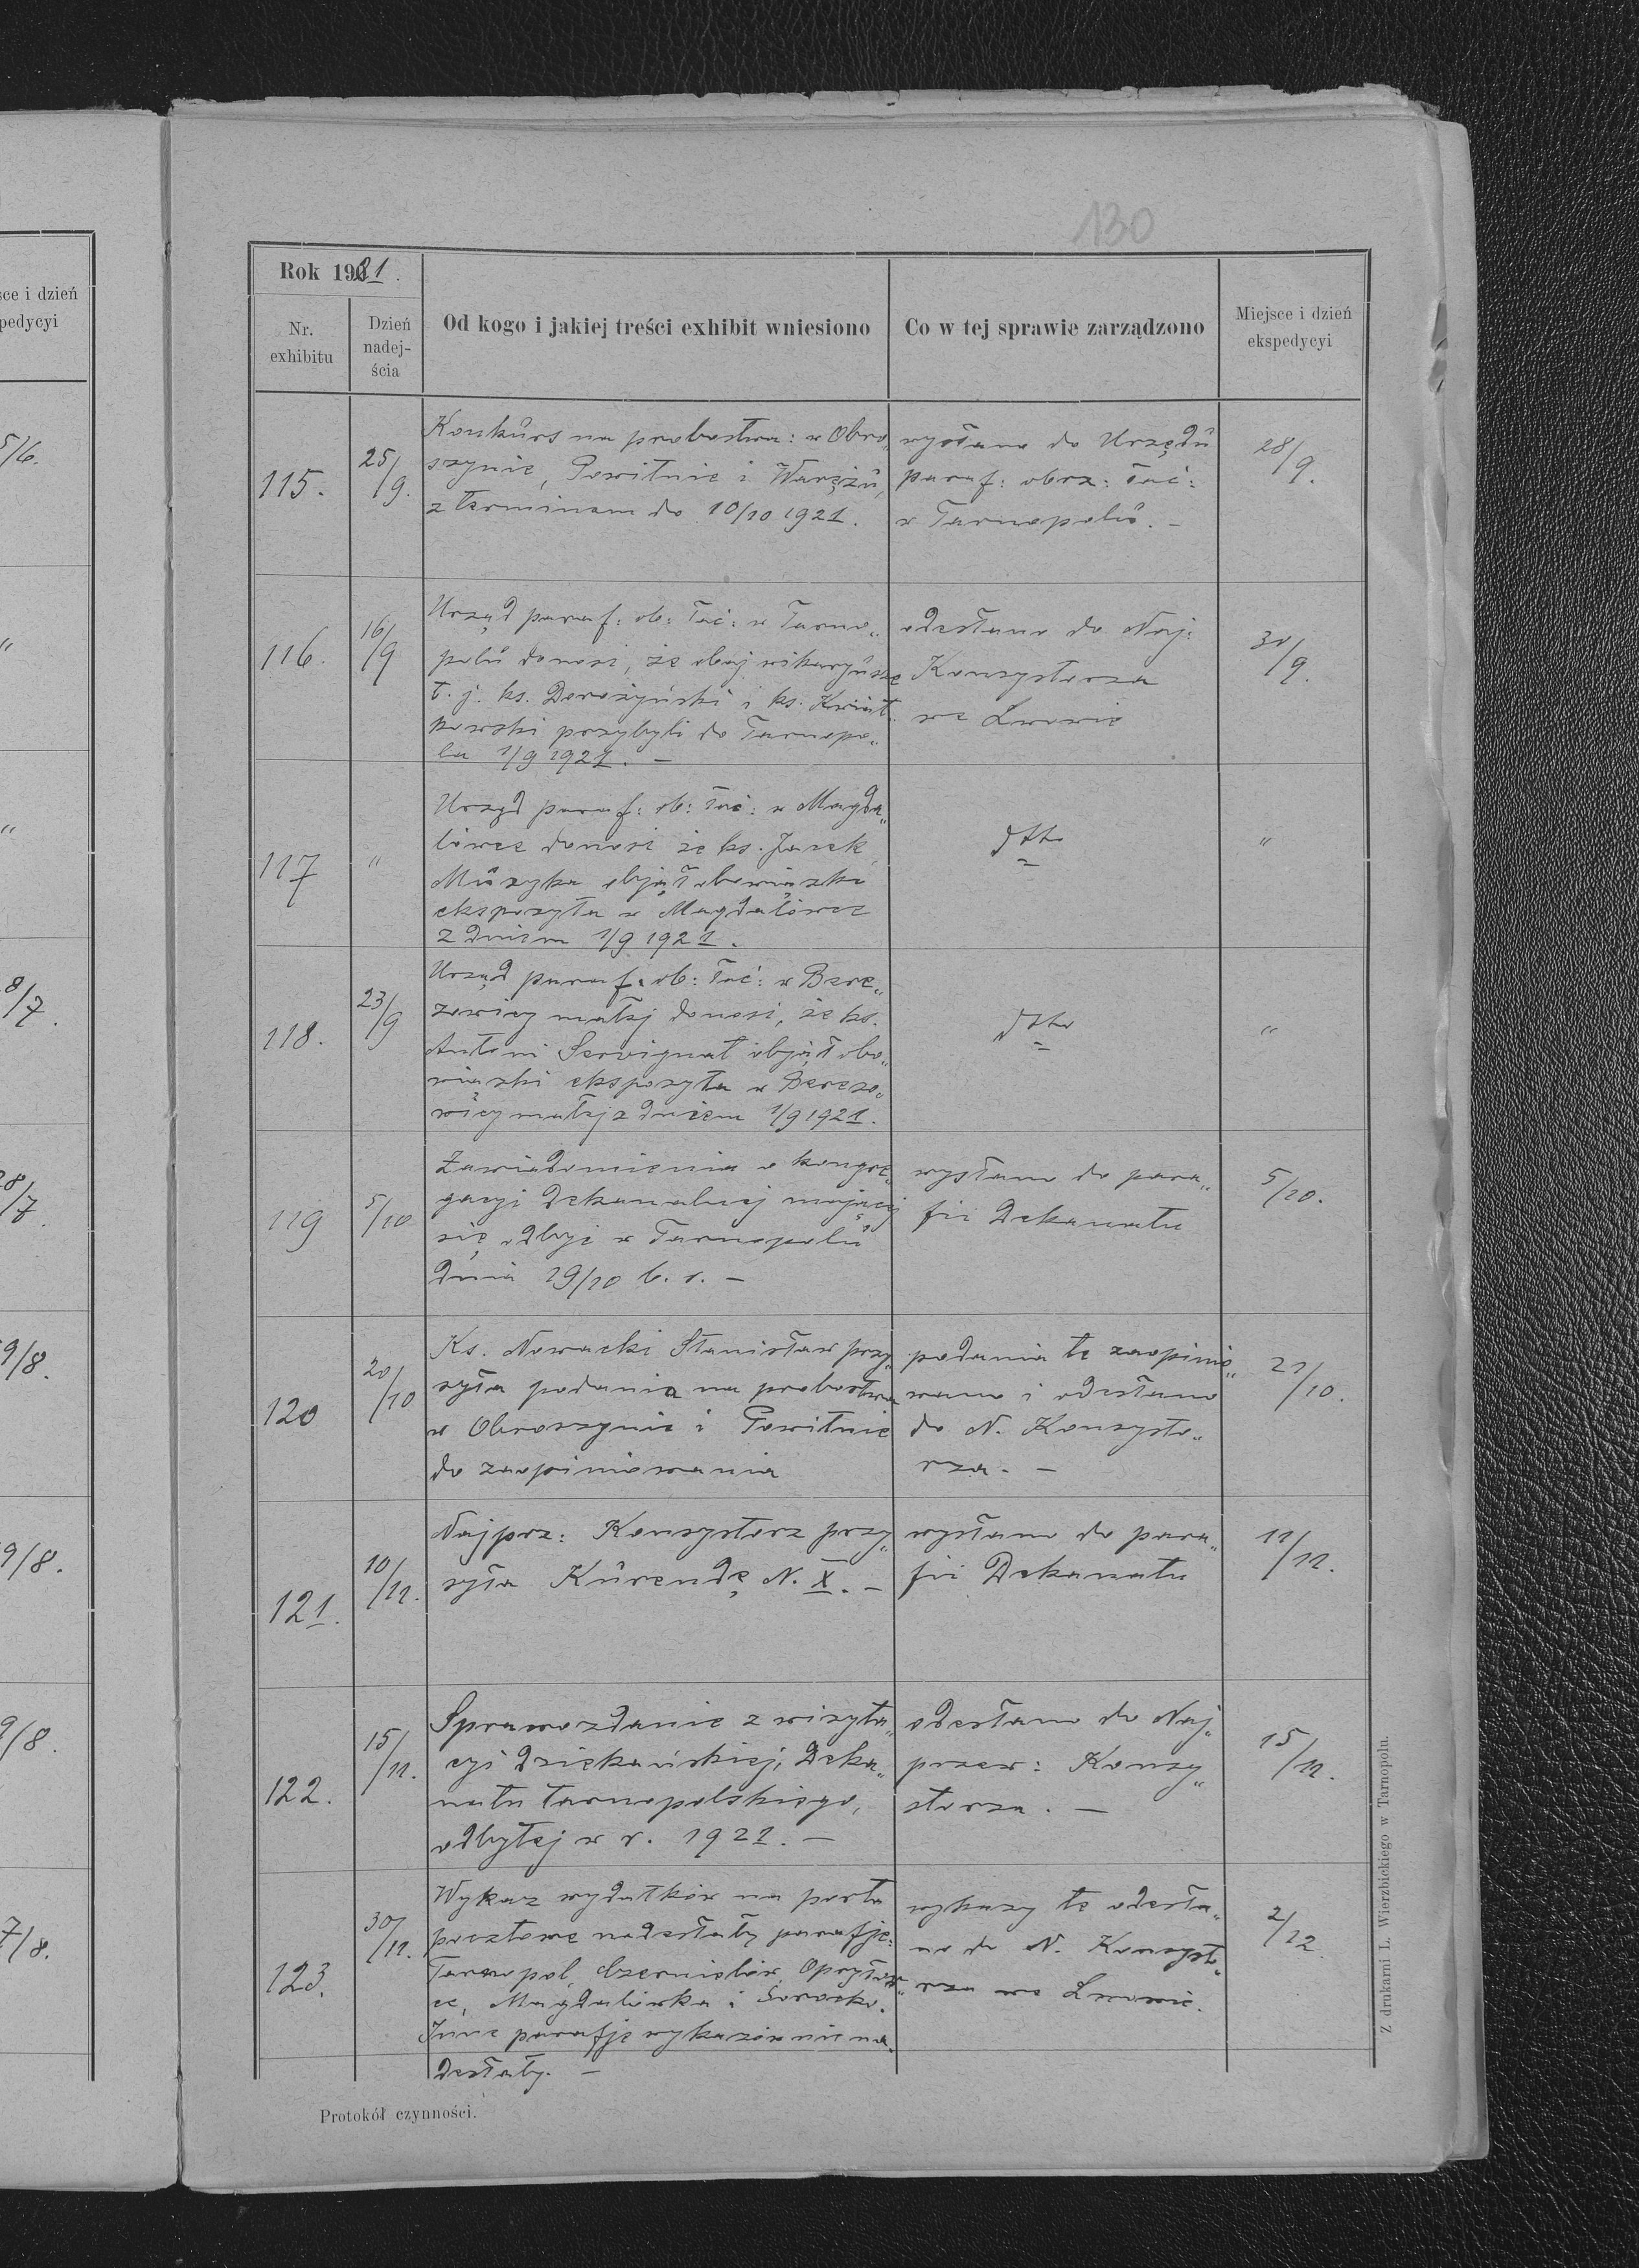 130
sce i dzień
pedycyi
5/6.
"
"
8/7.
28/7.
9/8.
9/8.
9/8.
7/8.
Rok 1921.
Nr.
exhibitu
Dzień
nadej-
ścia
Od kogo i jakiej treści exhibit wniesiono
Co w tej sprawie zarządzono
Miejsce i dzień
ekspedycyi
115.
25/9.
Konkurs na probostwa: w Obro„
szynie, Powitnie i Warężu,
z terminem do 10/10 1921.
wysłano do Urzędu
paraf: obrz: łać:
w Tarnopolu. –
28/9.
116.
16/9
Urząd paraf: ob: łać: w Tarno„
polu donosi, że obaj wikaryusze
t. j. ks. Derożyński i ks. Kwiat
kowski przybyli do Tarnopo„
la 1/9 1921. –
odesłano do Naj:
Konsystorza
we Lwowie
30/9.
117
"
Urząd paraf: ob: łać: w Magda„
lówce donosi że ks. Jacek
Muzyka objął obowiązki
ekspozyta w Magdalówce
z dniem 1/9 1921.
dtto
"
118.
23/9
Urząd paraf: ob: łać: w Bere„
zowicy małej donosi, że ks.
Antoni objął obo„
wiązki ekspozyta w Berezo„
wicy małej z dniem 1/9 1921.
dtto
"
119
5/10
Zawiadomienia o kongre„
gacyi Dekanalnej mającej
się odbyć w Tarnopolu
dnia 19/10 b. r. –
wysłano do para„
fii Dekanatu
5/10.
120
20/10
Ks. Nowacki Stanisław przy„
syła podania na probostwa
w Obroszynie i Powitnie
do zaopiniowania
podania te zaopinio„
wano i odesłano
do N. Konsysto„
rza. –
21/10.
121.
10/11.
Najprz: Konsystorz przy„
syła Kurendę N. X. –
wysłano do para„
fii Dekanatu
11/11.
122.
15/11.
Sprawozdanie z wizyta„
cyi dziekańskiej, Deka„
natu tarnopolskiego,
odbytej w r. 1921. –
odesłano do Naj„
przew: Konsy„
storza. –
15/11.
123.
30/11.
Wykaz wydatków na porta
pocztowe nadesłały parafje:
Tarnopol, Czernielów, Opryłow„
ce, Magdalówka i Sorocko.
Inne parafje wykazów nie na„
desłały. –
wykazy te odesła„
no do N. Konsysto„
rza we Lwowie.
2/12.
Protokół czynności.
Z drukarni L. Wierzbickiego w Tarnopolu.